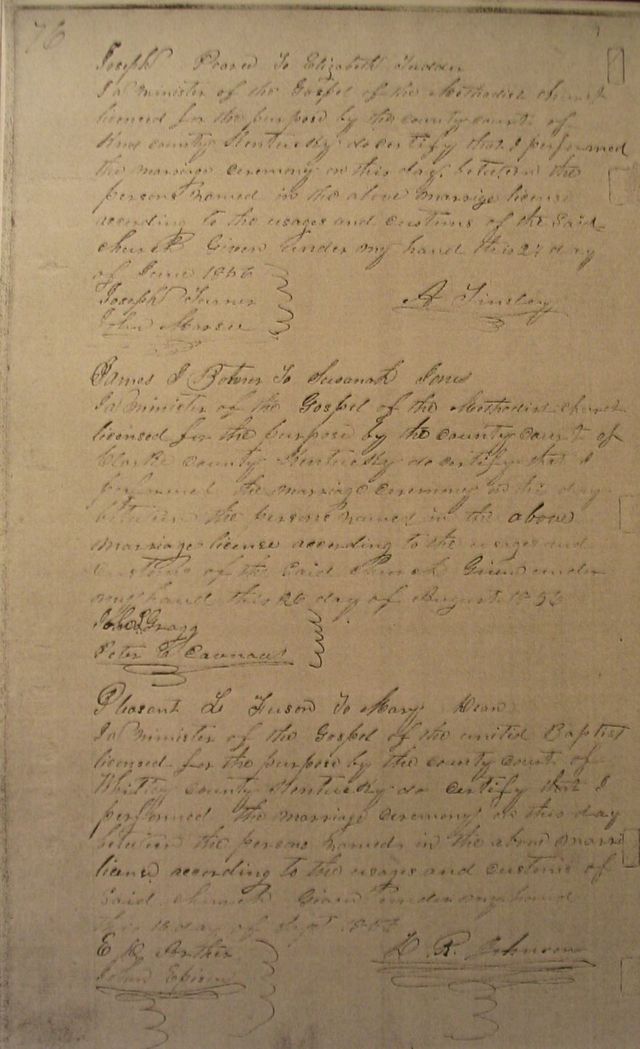 76
Joseph To Elizabeth
I a minister of the Gospel of the Methodist church
licensed for the purpose by the county court of
Knox county Kentucky do certify that I performed
the marriage ceremony on this day between the
persons named in the above marriage license
according to the usages and customs of the Said
church Given under my hand this 27 day
of June 1856
Joseph Turner
John
A Tinsley
James J To Susanah Jones
I a minister of the Gospel of the Methodist church
licensed for the purpose by the county court of
Clarke county Kentucky do certify that I
performed the marriage ceremony on this day
between the persons named in the above
marriage license according to the usages and
customs of the Said Church Given under
my hand this 26 day of August 1856
Gragg
Peter
Pleasant L To Mary Dean
I a minister of the Gospel of the united Baptist
licensed for the purpose by the county court of
Whitley county Kentucky do certify that I
performed the marriage ceremony on this day
between the persons named in the above marri
license according to the usages and customs of
Said church Given under my hand
this day of Sept 1856
E
John
R. Johnson